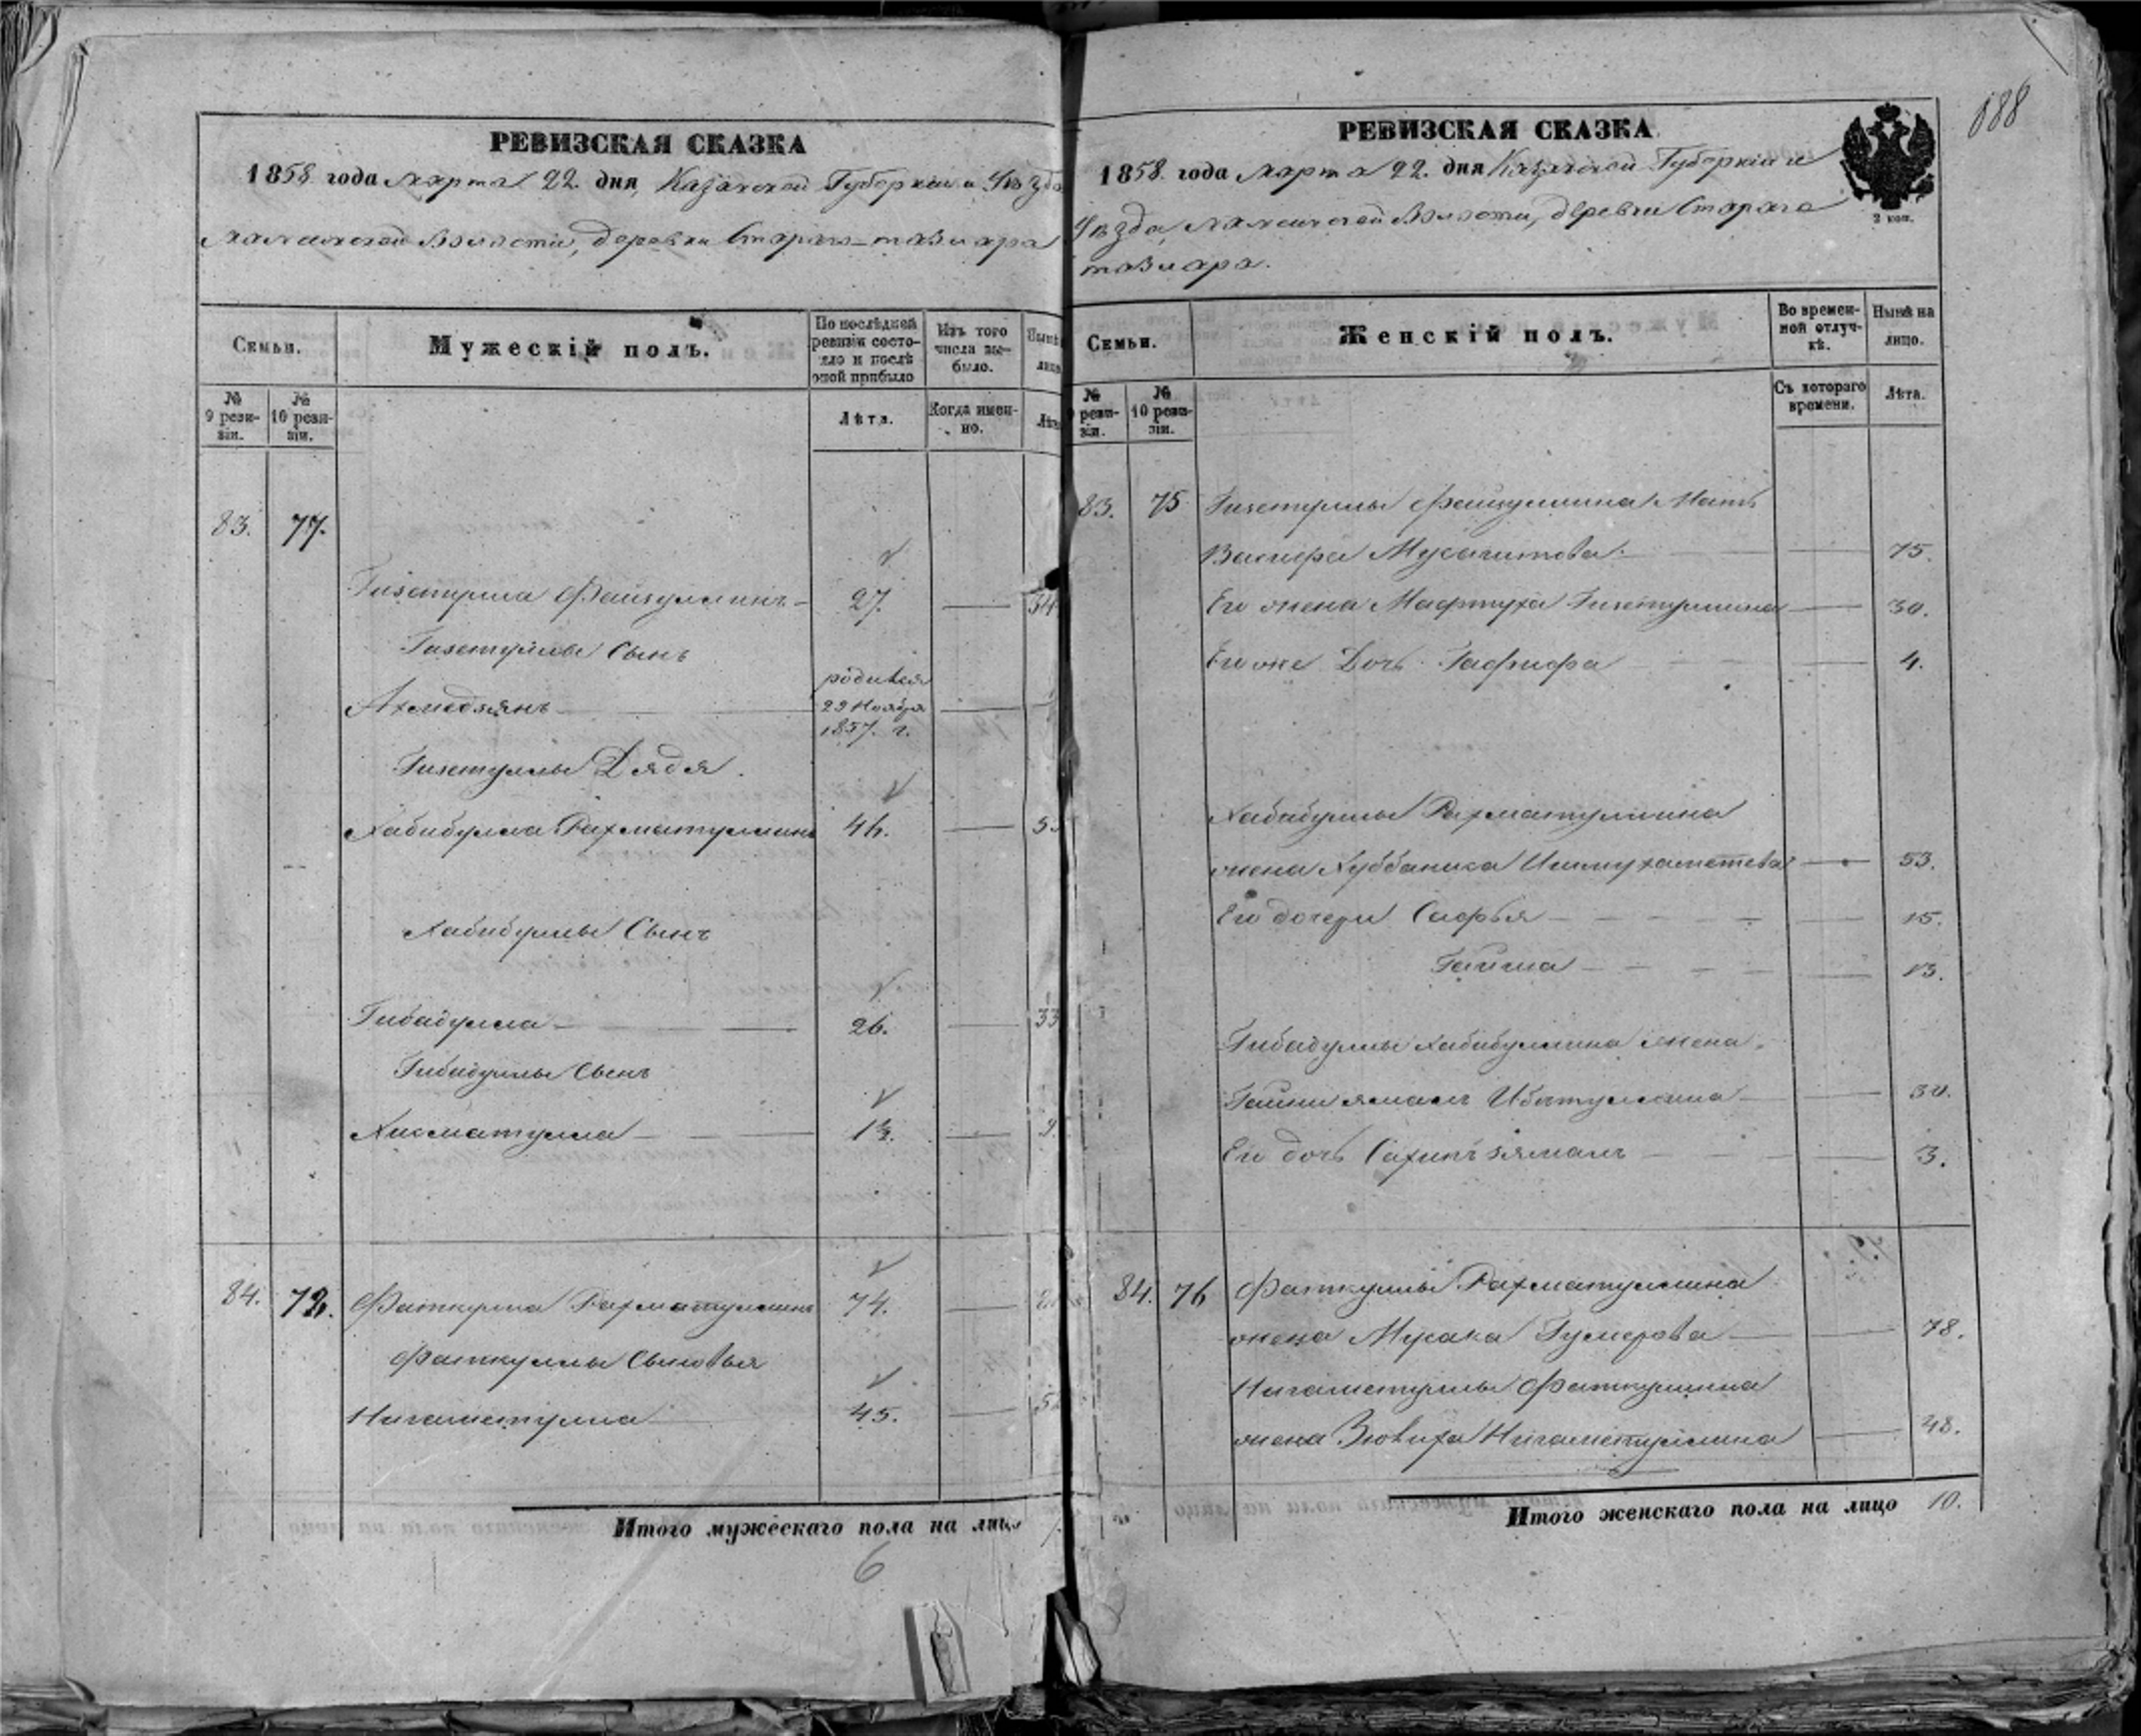 188
РЕВИЗСКАЯ СКАЗКА
1858 года марта 22. дня, Казанской Губернии и Уѣзда
волости, деревни Стараго
Семьи.
Мужескій полъ.
По послѣдней ревизіи состояло и послѣ оной прибыло
Изъ того числа выбыло.
Нынѣ на лицо
№ 9 ревизіи.
№ 10 ревизіи.
Лѣта.
Когда именно.
Лѣта
83. 77.
Гизетулла Файзуллинъ 27. 34
Гизетуллы Сынъ
Ахмедзянъ родился 29 Ноября 1857. г.
Гизетуллы Дядя.
Хабибулла Рахматуллинъ 46.
Хабибуллы Сынъ
Гибадулла 26. 33
Гибадуллы Сынъ
Хисматулла 1½.
84. 72. Фаткулла Рахматуллинъ 74.
Фаткуллы Сыновья
Нигаметулла 45.
Итого мужескаго пола на лицо
6
РЕВИЗСКАЯ СКАЗКА
2 коп.
1858. года марта 22. дня Казанской Губерніи и
Уѣзда, волости, деревни Стараго
Семьи.
Женскій полъ.
Во временной отлучкѣ.
Нынѣ на лицо.
№ 9 ревизіи.
№ 10 ревизіи.
Съ котораго времени.
Лѣта.
83. 75 Гизетуллы Файзуллина Мать
Васифа 75.
Его жена Мафтуха Гизетуллина 30.
Его же Дочь Гафифа 4.
Хабибуллы Рахматуллина
жена Ишмухаметева 53.
Его дочери Сафья 15.
13.
Гибадуллы Хабибуллина жена
Ибятуллина 30.
Его дочь 3.
84. 76 Фаткуллы Рахматуллина
жена Гумерова 78.
Нигаметуллы Фаткуллина
жена Нигаметуллина 48.
Итого женскаго пола на лицо 10.